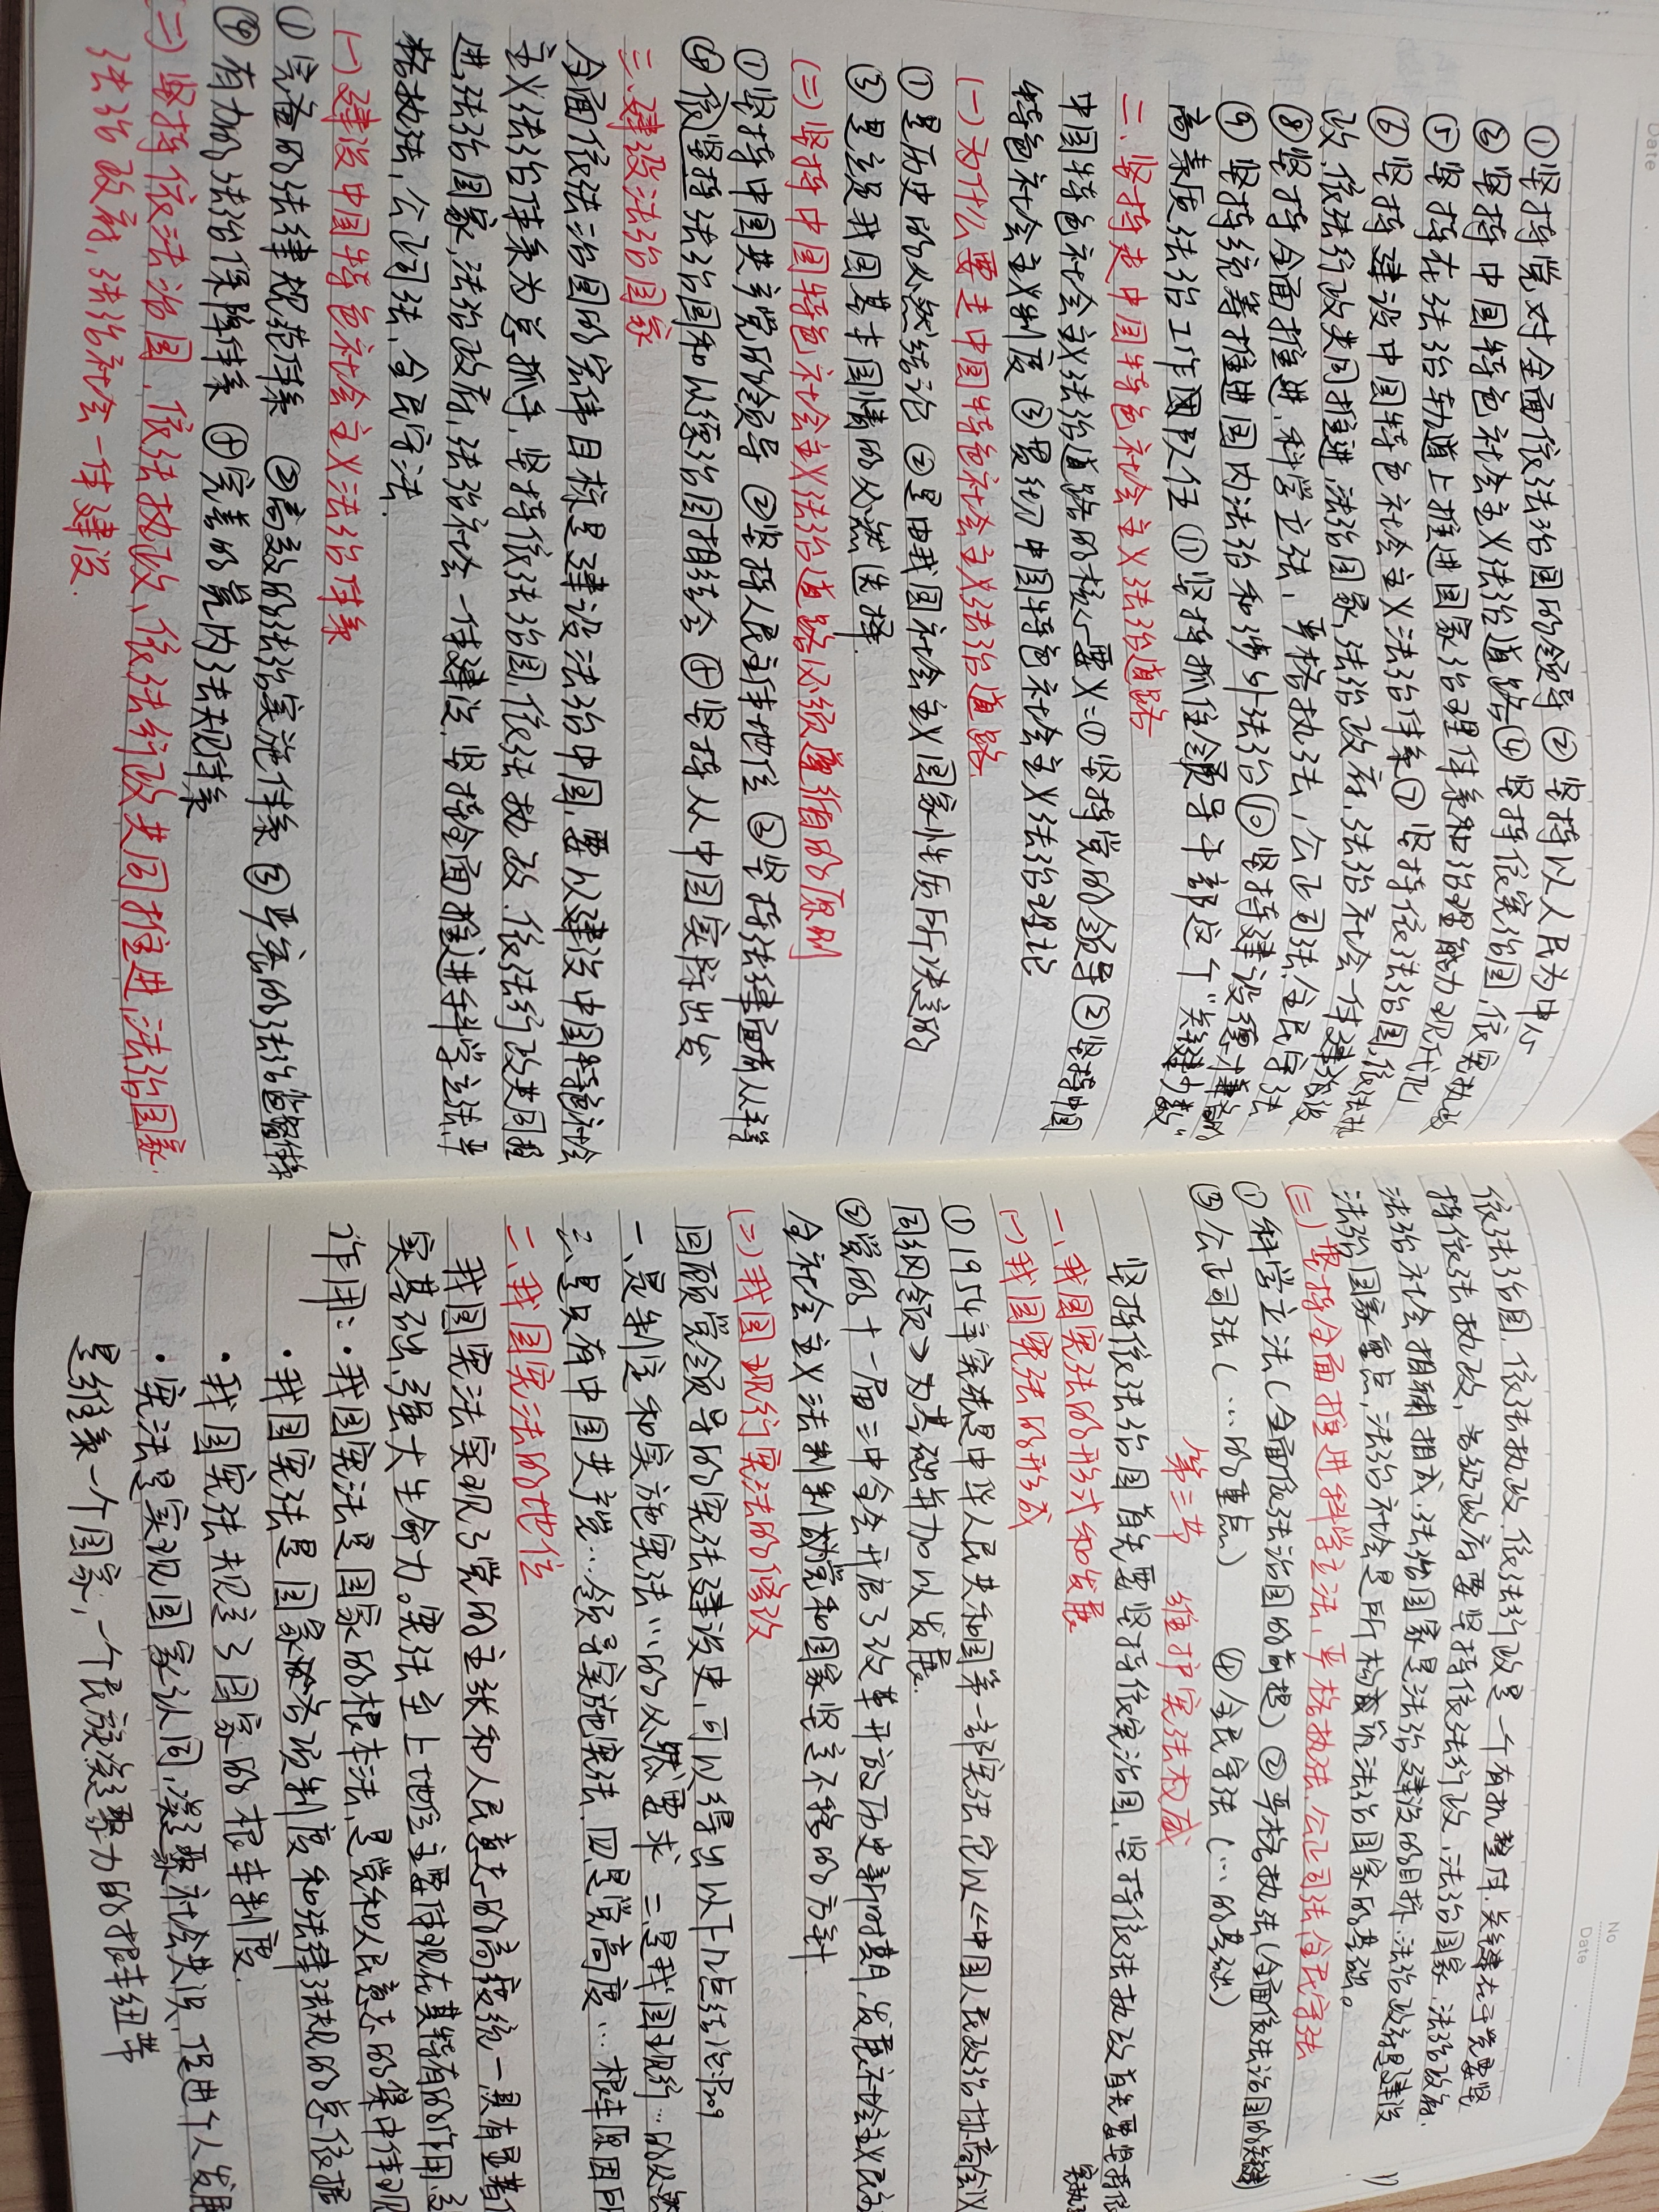 Date
①坚持党对全面依法治国的领导 ②坚持以人民为中心
③坚持中国特色社会主义法治道路 ④坚持依宪治国,依宪执政
⑤坚持在法治轨道上推进国家治理体系和治理能力现代化
⑥坚持建设中国特色社会主义法治体系 ⑦坚持依法治国,依法执
政,依法行政共同推进,法治国家,法治政府,法治社会一体建设
⑧坚持全面推进,科学立法,严格执法,公正司法,全民守法
⑨坚持统筹推进国内法治和涉外法治 ⑩坚持建设德才兼备的
高素质法治工作团队伍 ⑪坚持抓住领导干部这个"关键少数"
二、坚持走中国特色社会主义法治道路
中国特色社会主义法治道路的核心要义:①坚持党的领导 ②坚持中国
特色社会主义制度 ③贯彻中国特色社会主义法治理论
(一)为什么要走中国特色社会主义法治道路.
①是历史的必然结论 ②是由我国社会主义国家性质所决定的
③是立足我国基本国情的必然选择.
(二)坚持中国特色社会主义法治道路必须遵循的原则
①坚持中国共产党的领导 ②坚持人民主体地位 ③坚持法律面前人人平等
④依坚持法治国和以德治国相结合 ④坚持从中国实际出发
三、建设法治国家
全面依法治国的宏伟目标是建设法治中国,要以建设中国特色社会
主义法治体系为总抓手,坚持依法治国,依法执政,依法行政共同推
进,法治国家,法治政府,法治社会一体建设,坚持全面推进科学立法,严
格执法,公正司法,全民守法.
(一)建设中国特色社会主义法治体系
①完备的法律规范体系 ②高效的法治实施体系 ③严密的法治监督体系
④有力的法治保障体系 ④完善的党内法规体系
(二)坚持依法治国,依法执政、依法行政共同推进,法治国家.
法治政府,法治社会一体建设.
No
Date
依法治国,依法执政,依法行政是一个有机整体.关键在于党要坚
持依法执政,各级政府要坚持依法行政,法治国家.法治政府.
法治社会相辅相成.法治国家是法治建设的目标.法治政府是建设
法治国家重点,法治社会是所构筑法治国家的基础。
(三)坚持全面推进科学立法,严格执法,公正司法,全民守法
①科学立法(全面依法治国的前提) ②严格执法(全面依法治国的关键)
③公正司法(…的重点) ④全民守法(…的基础)
第三节 维护宪法权威
坚持依法治国首先要坚持依宪治国,坚持依法执政首先要坚持依
宪执政
一、我国宪法的形式和发展
(一)我国宪法的形成
①1954年宪法是中华人民共和国第一部宪法它以《中国人民政治协商会议
同纲领》为基础并加以发展.
②党的十一届三中全会开启了改革开放历史新时期,发展社会主义民
全社会主义法制制成党和国家坚定不移的方针
(二)我国现行宪法的修改
回顾党领导的宪法建设史,可以得出以下几点结论:P09
一、是制定和实施宪法…的必然要求 二是我国现行…的必然
三、是只有中国共产党…领导实施宪法.四是党高度…根本原因同
二、我国宪法的地位
我国宪法实现了党的主张和人民意志的高度统一具有显著
实基础,强大生命力。宪法至上地位主要体现在其特有的作用.
作用:·我国宪法是国家的根本法,是党和人民意志的集中体现
·我国宪法是国家各项制度和法律法规的总依据
·我国宪法规定了国家的根本制度.
·宪法是实现国家认同,凝聚社会共识,促进个人发展
是维系一个国家,一个民族凝聚力的根本纽带